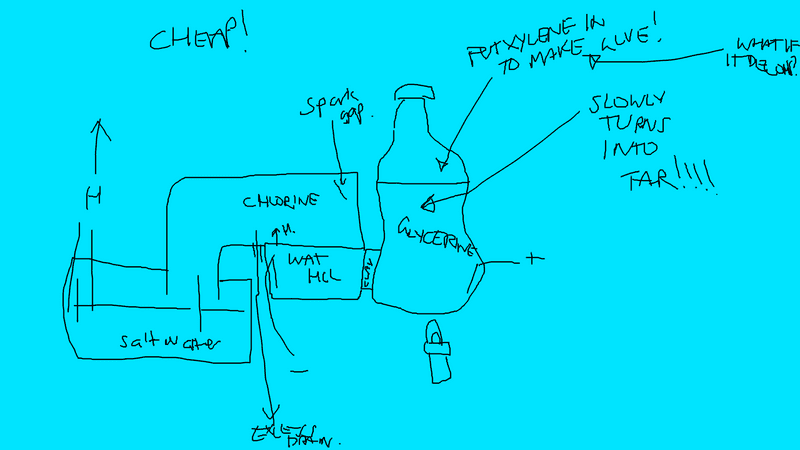 CHEAP!
PUT XYLENE IN
TO MAKE GLUE!
WHAT IF
Spark
gap.
SLOWLY
TURNS
INTO
TAR!!!!
H
CHLORINE
H.
WAT
HCL
CLAY
GLYCERINE
+
Salt water
−
EXCESS
DRAIN.